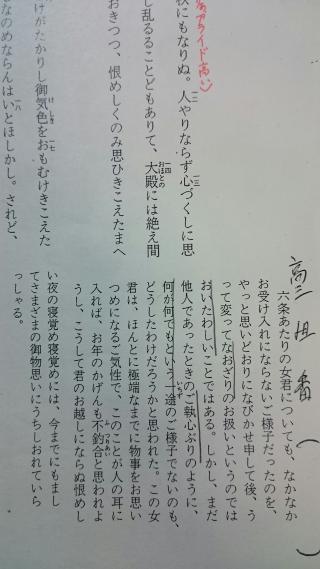 (プライド高い)
秋にもなりぬ。人やりならず心づくしに思
し乱るることどもありて、大殿には絶え間
おきつつ、恨めしくのみ思ひきこえたまへ
けがたかりし御気色をおもむけきこえた
なのめならんはいとほしかし。されど、
高三 担 番 ( )
六条あたりの女君についても、なかなか
お受け入れにならないご様子だったのを、
やっと思いどおりになびかせ申して後、う
って変ってなおざりのお扱いというのでは
おいたわしいことではある。しかし、まだ
他人であったときのご執心ぶりのように、
何が何でもという一途のご様子でないのも、
どうしたわけだろうかと思われた。この女
君は、ほんとに極端なまでに物事をお思い
つめになるご気性で、このことが人の耳に
入れば、お年のかげんも不釣合と思われよ
うし、こうして君のお越しにならぬ恨めし
い夜の寝覚め寝覚めには、今までにもまし
てさまざまの御物思いにうちしおれていら
っしゃる。